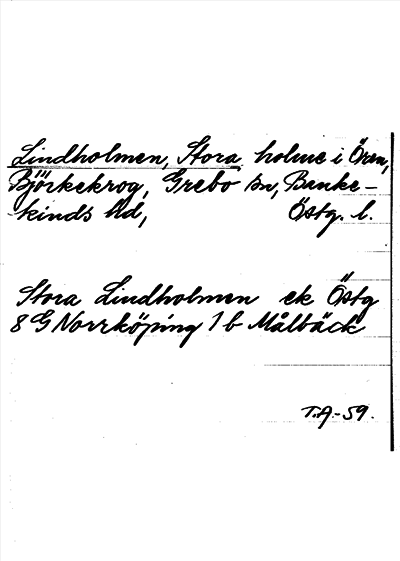 Lindholmen, Stora holme i Ören,
Björkekrog, Grebo sn, Banke-
kinds hd, Östg. l.
Stora Lindholmen ek Östg
8 G Norrköping 1 b Målbäck
T.A.-59.